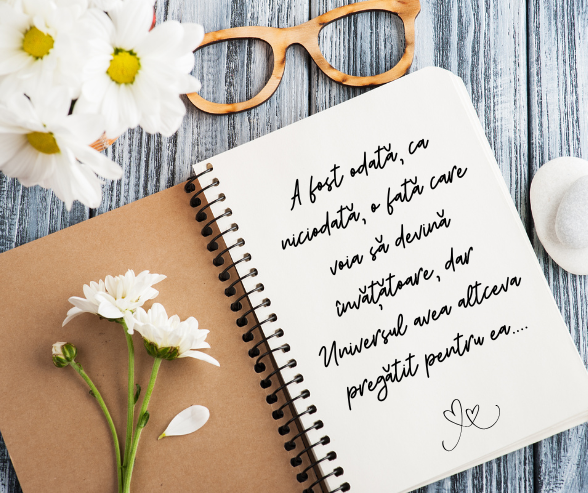 A fost odată, ca
niciodată, o fată care
voia să devină
învățătoare, dar
Universul avea altceva
pregătit pentru ea....